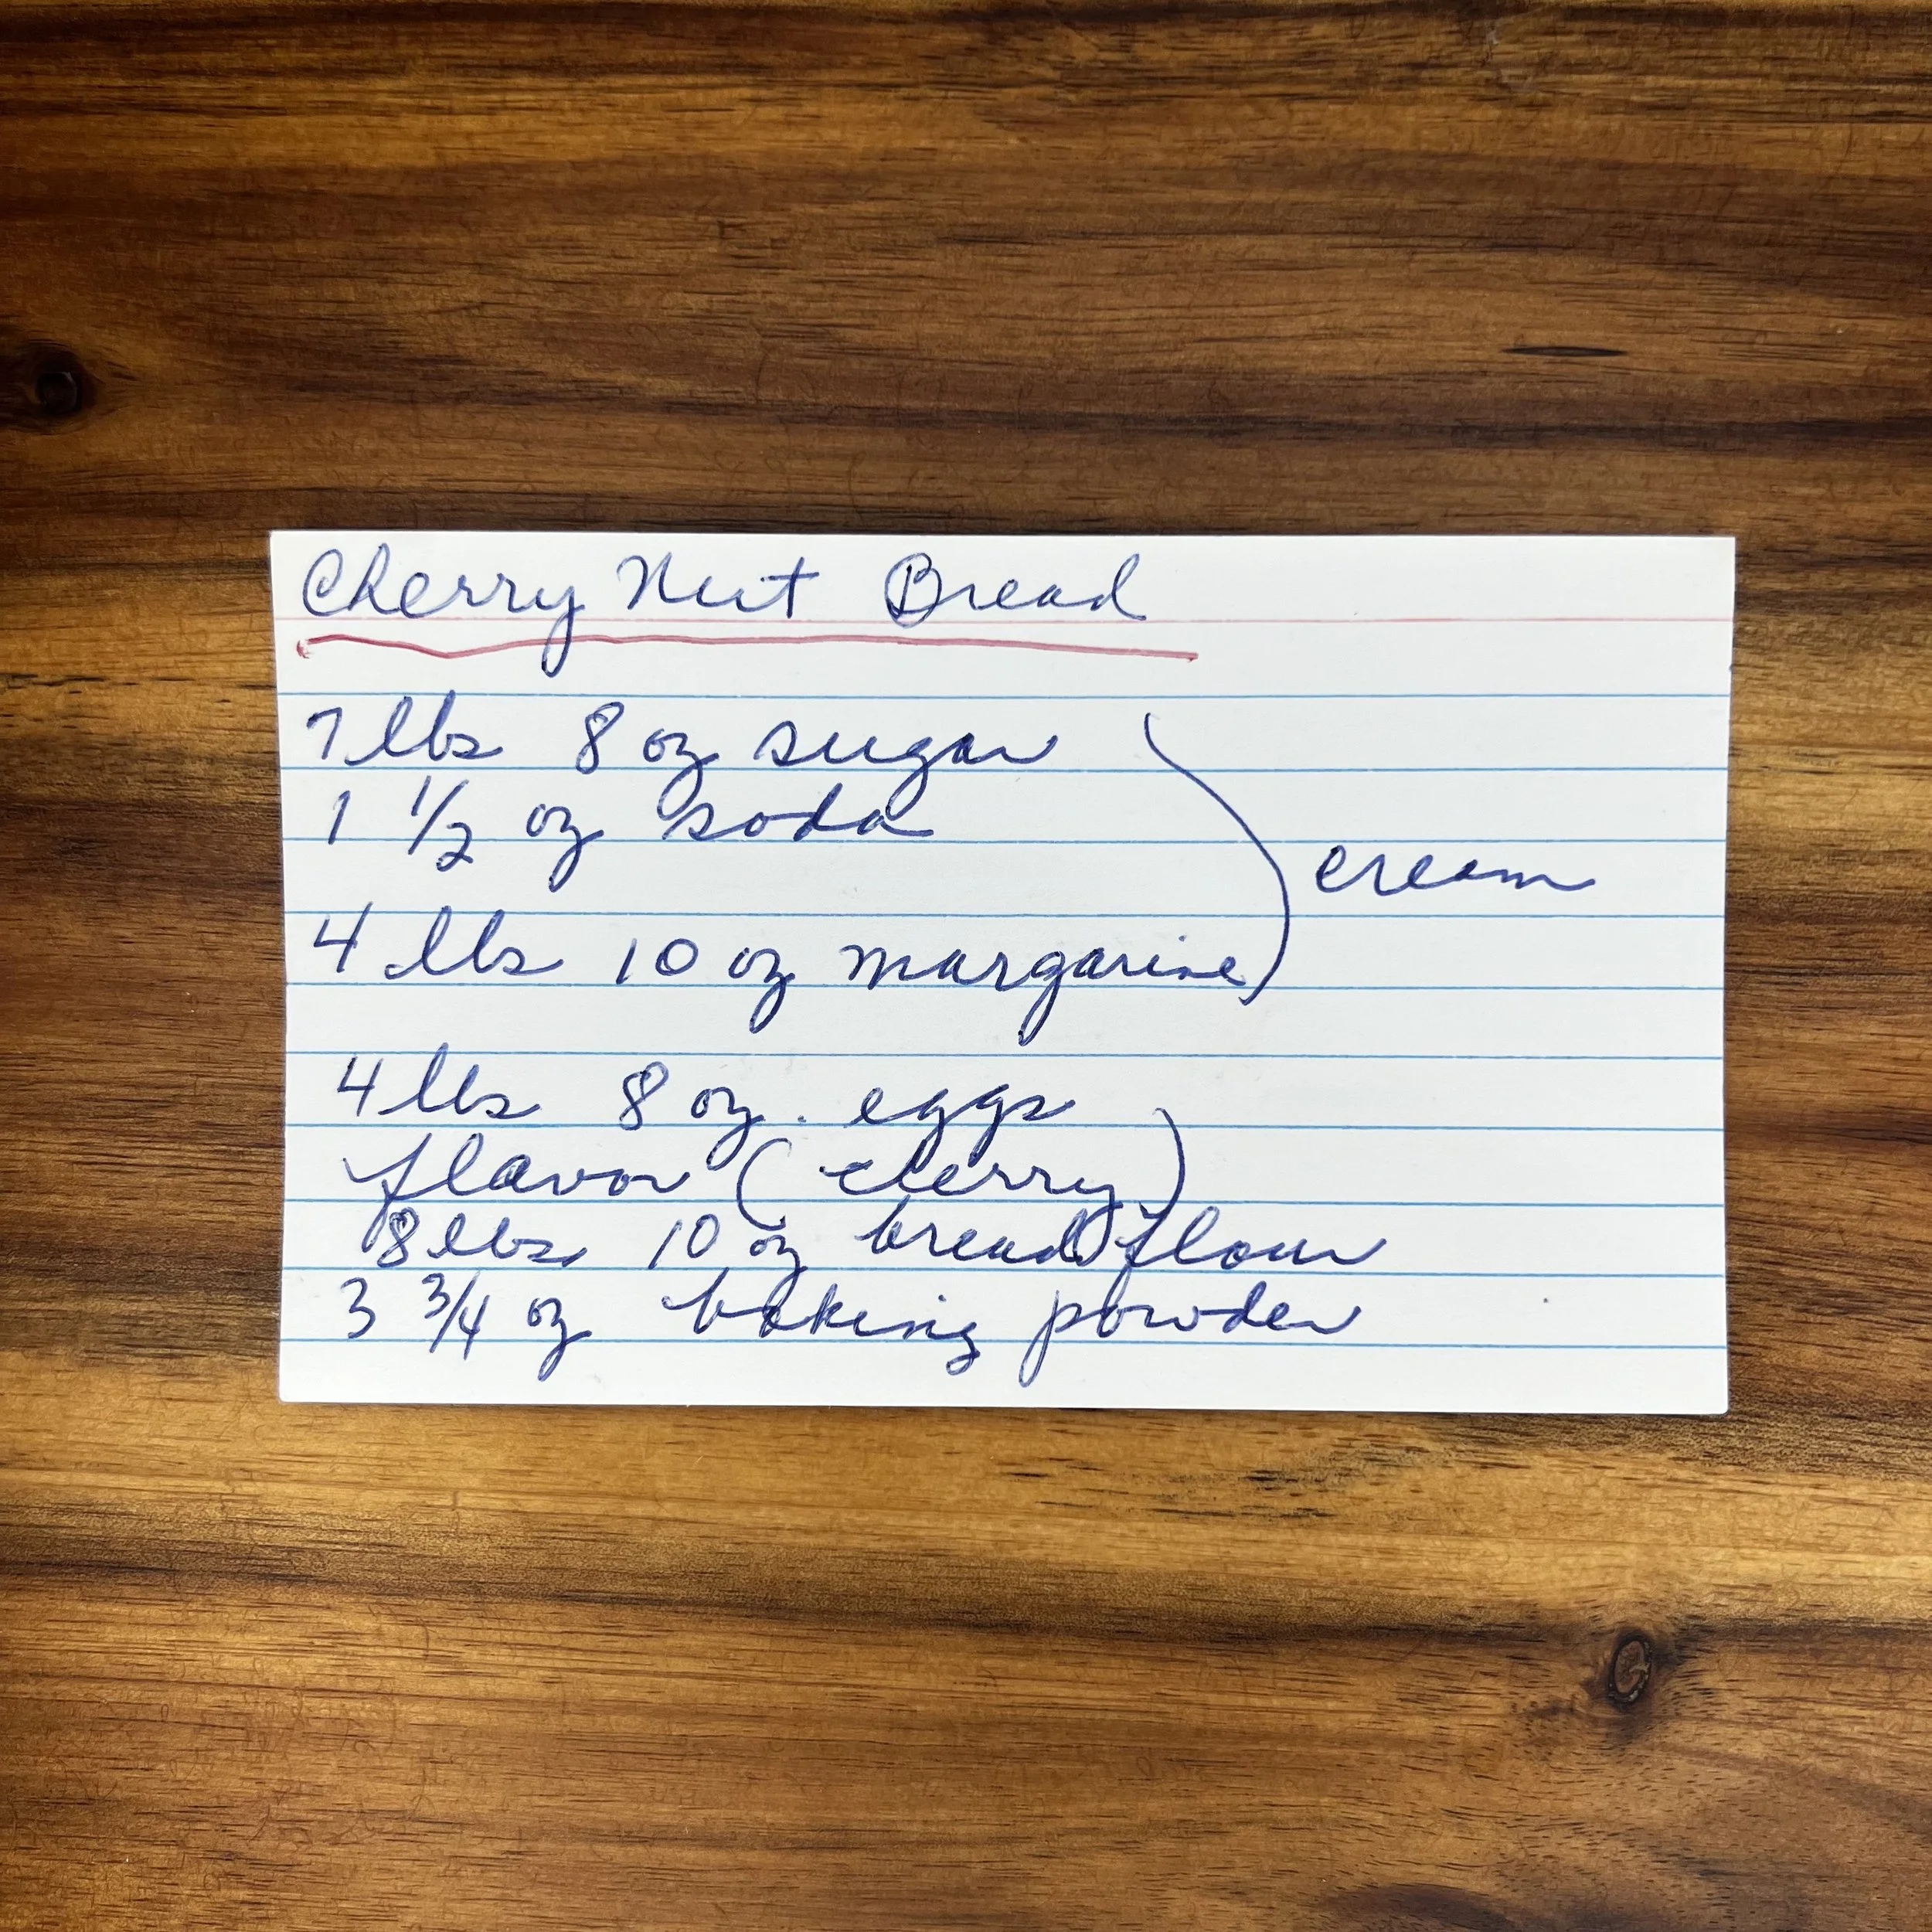 Cherry Nut Bread
7 lbs 8 oz sugar
1 1/2 oz soda
cream
4 lbs 10 oz margarine
4 lbs 8 oz. eggs
flavor (cherry)
8 lbs. 10 oz bread flour
3 3/4 oz baking powder